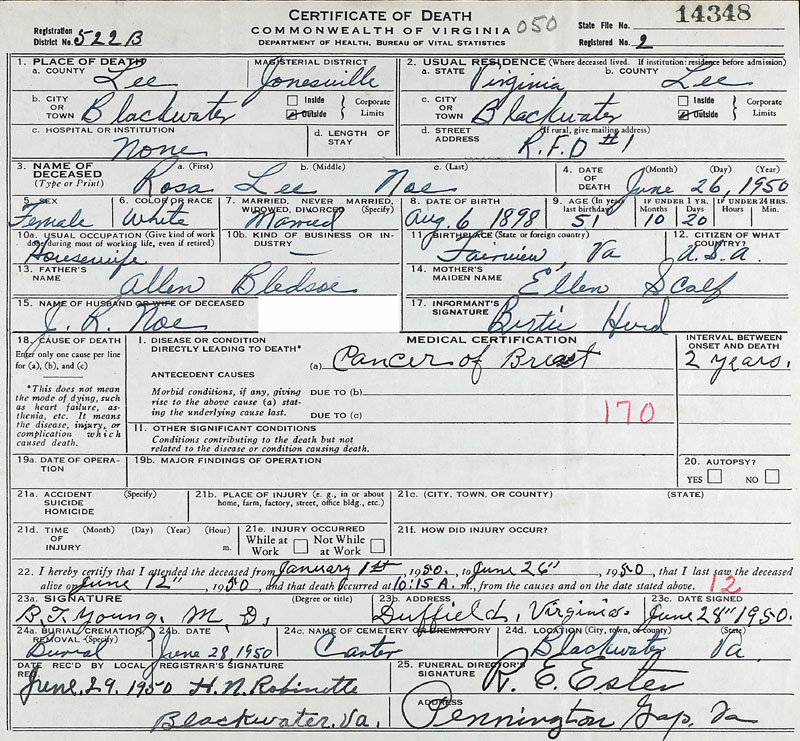 CERTIFICATE OF DEATH
COMMONWEALTH OF VIRGINIA
DEPARTMENT OF HEALTH, BUREAU OF VITAL STATISTICS
050
Registration District No. 522B
State File No. 14348
Registered No. 2
1. PLACE OF DEATH
a. COUNTY Lee
MAGISTERIAL DISTRICT Jonesville
2. USUAL RESIDENCE (Where deceased lived. If institution: residence before admission)
a. STATE Virginia
b. COUNTY Lee
b. CITY OR TOWN Blackwater
Inside
Outside
Corporate Limits
c. CITY OR TOWN Blackwater
Inside
Outside
Corporate Limits
c. HOSPITAL OR INSTITUTION None
d. LENGTH OF STAY
d. STREET ADDRESS (If rural, give mailing address) R.F.D #1
3. NAME OF DECEASED (Type or Print)
a. (First) Rosa
b. (Middle) Lee
c. (Last) Noe
4. DATE OF DEATH (Month) (Day) (Year) June 26, 1950
5. SEX Female
6. COLOR OR RACE White
7. MARRIED, NEVER MARRIED, WIDOWED, DIVORCED (Specify) Married
8. DATE OF BIRTH Aug. 6 1898
9. AGE (In years last birthday) 51
IF UNDER 1 YR. Months 10 Days 20
IF UNDER 24 HRS. Hours Min.
10a. USUAL OCCUPATION (Give kind of work done during most of working life, even if retired) Housewife
10b. KIND OF BUSINESS OR INDUSTRY —
11. BIRTHPLACE (State or foreign country) Fairview, Va
12. CITIZEN OF WHAT COUNTRY? U.S.A.
13. FATHER'S NAME Allen Bledsoe
14. MOTHER'S MAIDEN NAME Ellen Scalf
15. NAME OF HUSBAND OR WIFE OF DECEASED J. R. Noe
17. INFORMANT'S SIGNATURE Bertie Hurd
18. CAUSE OF DEATH
Enter only one cause per line for (a), (b), and (c)
*This does not mean the mode of dying, such as heart failure, asthenia, etc. It means the disease, injury, or complication which caused death.
MEDICAL CERTIFICATION
I. DISEASE OR CONDITION DIRECTLY LEADING TO DEATH*
(a) Cancer of Breast
INTERVAL BETWEEN ONSET AND DEATH
2 years.
ANTECEDENT CAUSES
Morbid conditions, if any, giving rise to the above cause (a) stating the underlying cause last.
DUE TO (b)
DUE TO (c)
170
II. OTHER SIGNIFICANT CONDITIONS
Conditions contributing to the death but not related to the disease or condition causing death.
19a. DATE OF OPERATION
19b. MAJOR FINDINGS OF OPERATION
20. AUTOPSY?
YES NO
21a. ACCIDENT SUICIDE HOMICIDE (Specify)
21b. PLACE OF INJURY (e. g., in or about home, farm, factory, street, office bldg., etc.)
21c. (CITY, TOWN, OR COUNTY) (STATE)
21d. TIME OF INJURY (Month) (Day) (Year) (Hour) m.
21e. INJURY OCCURRED
While at Work
Not While at Work
21f. HOW DID INJURY OCCUR?
22. I hereby certify that I attended the deceased from January 1st, 1950, to June 26", 1950, that I last saw the deceased
alive on June 12", 1950, and that death occurred at 10:15 A. m., from the causes and on the date stated above. 12
23a. SIGNATURE (Degree or title) B. T. Young, M. D.
23b. ADDRESS Duffield, Virginia.
23c. DATE SIGNED June 28" 1950.
24a. BURIAL, CREMATION, REMOVAL (Specify) Burial
24b. DATE June 28, 1950
24c. NAME OF CEMETERY OR CREMATORY Carter
24d. LOCATION (City, town, or county) (State) Blackwater Va
DATE REC'D BY LOCAL REG. June 29. 1950
REGISTRAR'S SIGNATURE H. N. Robinette
Blackwater, Va.
25. FUNERAL DIRECTOR'S SIGNATURE R. E. Estep
ADDRESS Pennington Gap, Va